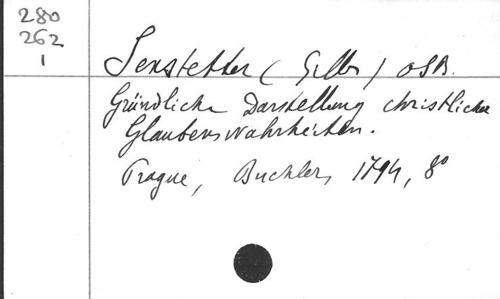 280
262
1
Senstetter (Gilb.) OSB.
Gründliche Darstellung christlicher
Glaubenswahrheiten.
Prague, Buchler, 1794, 8°